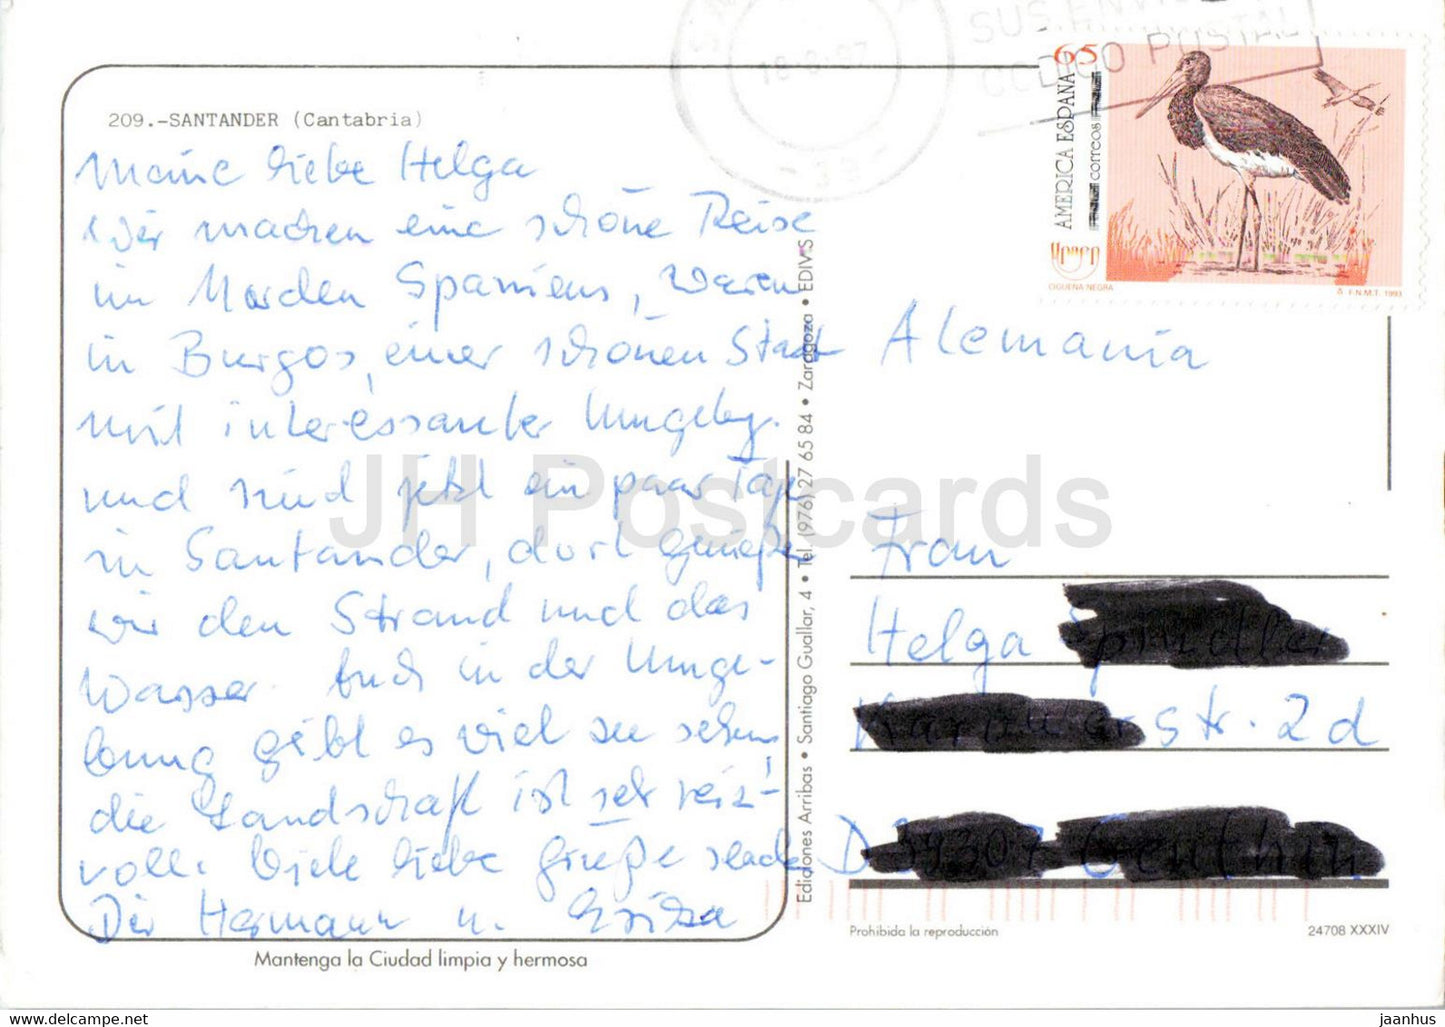 209.-SANTANDER (Cantabria)
Meine liebe Helga
Wir machen eine schöne Reise
im Norden Spaniens, waren
in Burgos, einer schönen Stadt
mit interessanter Umgebg.
und sind jetzt ein paar Tage
in Santander, dort genießen
wir den Strand und das
Wasser. Auch in der Umge-
bung gibt es viel zu sehen,
die Landschaft ist sehr reiz-
voll. Viele liebe Grüße sendet
Dir Hermann u.
Mantenga la Ciudad limpia y hermosa
Ediciones Arribas • Santiago Guallar, 4 • Tel. (976) 27 65 84 • Zaragoza • EDIVIS
SUS ENVI
CODIGO POSTAL
18-8-97
65
AMERICA ESPAÑA
correos
CIGUEÑA NEGRA
F.N.M.T. 1993
Alemania
Frau
Helga
str. 2d
D
Prohibida la reproducción
24708 XXXIV
JH Postcards
https://www.jhpostcards.com
jaanhus